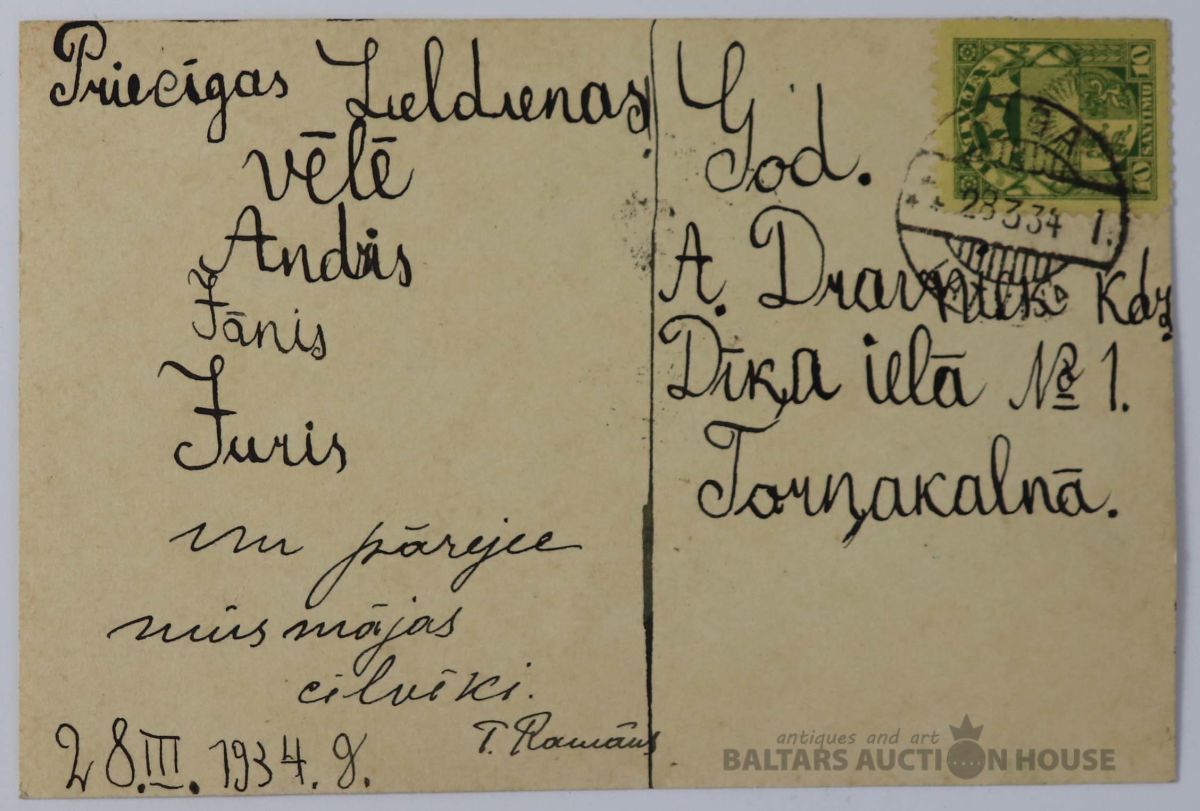 Priecīgas Lieldienas
vēlē
Andris
Jānis
Juris
un pārejee
mūs mājas
cilvēki.
28.III.1934.g.
T. Ramāns
God.
A. Dravniek kdz
Dīķa ielā № 1.
Torņakalnā.
LATVIJA
10 SANTIMU 10
RIGA
** 28 3 34 1.
antiques and art
BALTARS AUCTION HOUSE